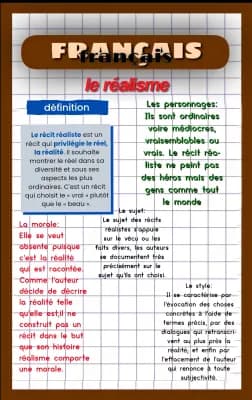 FRANÇAIS
français
le réalisme
définition
Le récit réaliste est un
récit qui privilégie le réel,
la réalité. Il souhaite
montrer le réel dans sa
diversité et sous ses
aspects les plus
ordinaires. C'est un récit
qui choisit le « vrai » plutôt
que le « beau ».
Les personnages:
Ils sont ordinaires
voire médiocres,
vraisemblables ou
vrais. Le récit réa-
liste ne peint pas
des héros mais des
gens comme tout
le monde
Le sujet:
Le sujet des récits
réalistes s'appuie
sur le vécu ou les
faits divers, les auteurs
se documentent très
précisément sur le
sujet qu'ils ont choisi.
La morale:
Elle se veut
absente puisque
c'est la réalité
qui est racontée.
Comme l'auteur
décide de décrire
la réalité telle
qu'elle est,il ne
construit pas un
récit dans le but
que son histoire
réalisme comporte
une morale.
Le style:
Il se caractérise par
l'évocation des choses
concrètes à l'aide de
termes précis, par des
dialogues qui retranscri-
vent au plus près la
réalité, et enfin par
l'effacement de l'auteur
qui renonce à toute
subjectivité.